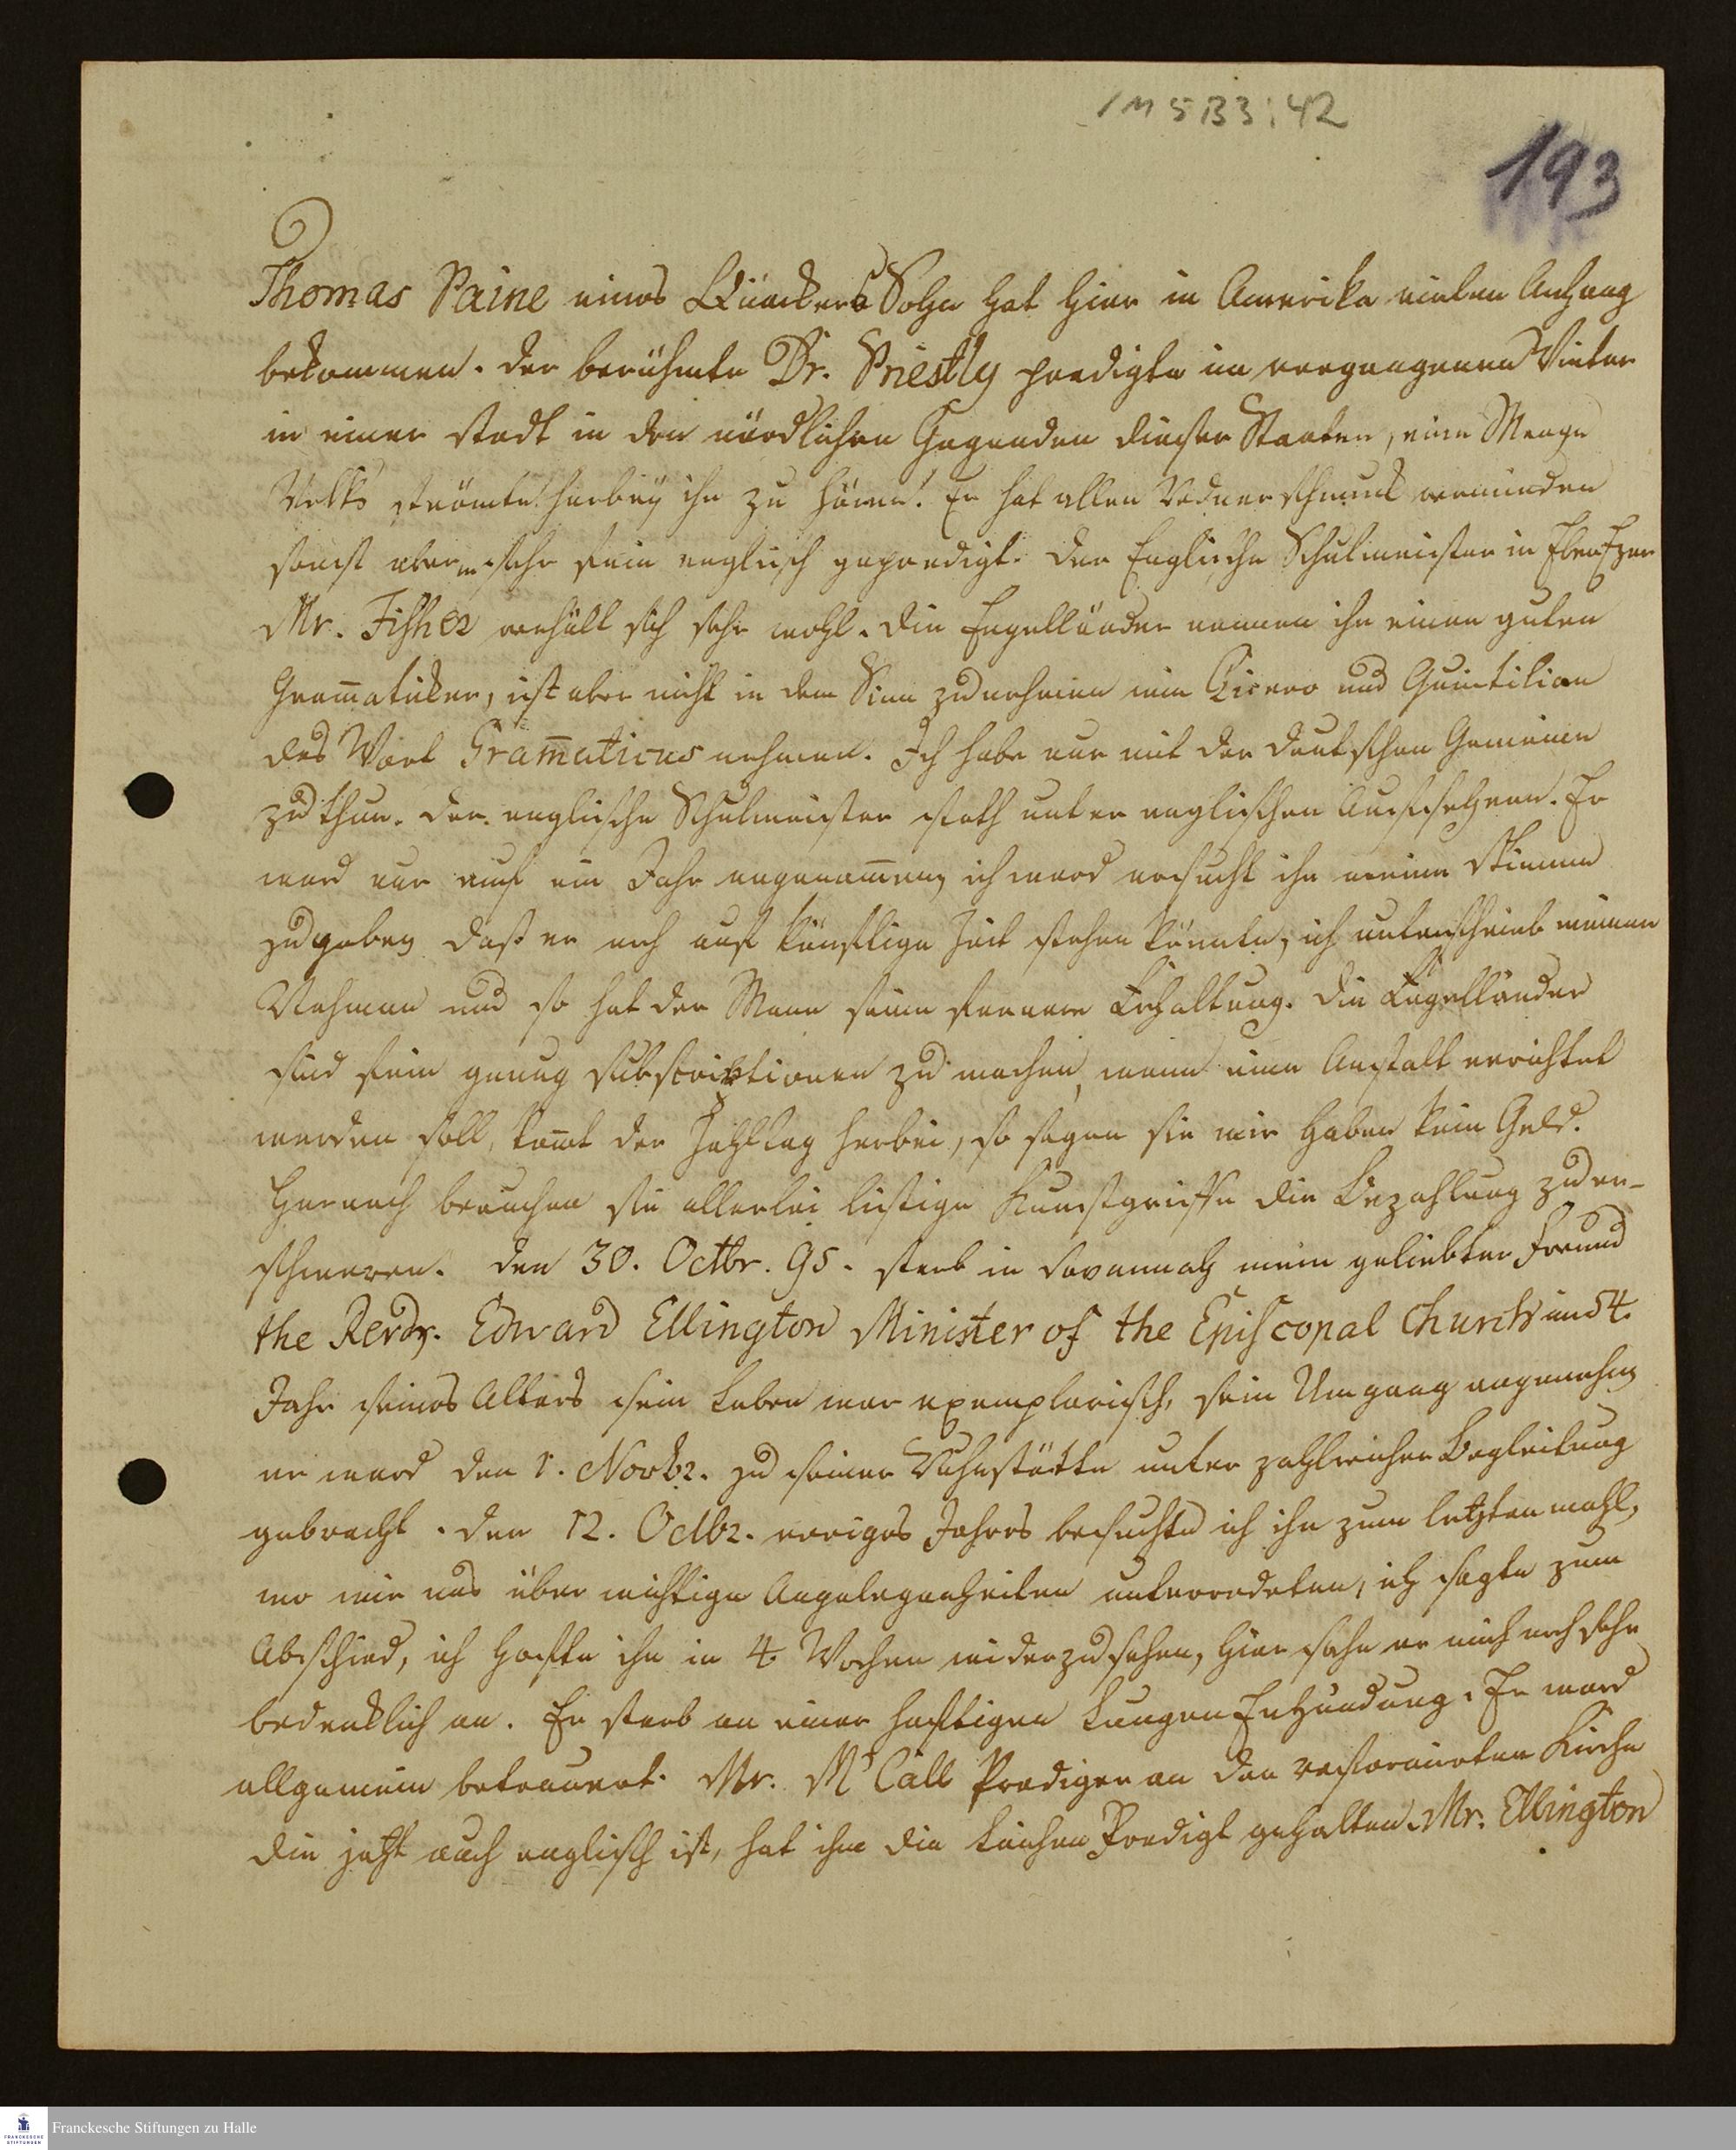 1 M 5 B 3 : 42
193
Thomas Paine eines Quackers Sohn hat hier in Amerika vielen Anhang
bekommen. der berühmte Dr. Priestly predigte im vergangenen Winter
in einer stadt in den nördlichen Gegenden dieser Staaten, eine Menge
Volks strömte herbey ihn zu hören. Er hat allen Rednerschmuck vermieden
sonst aber sehr fein englisch gepredigt. der Englische Schulmeister in EbenEzer
Mr. Fisher verhält sich sehr wohl. die Engelländer nennen ihn einen guten
Gram̅atiker, ist aber nicht in dem Sinn zu nehmen wie Cicero und Quintilian
das Wort Gram̅aticus nehmen. Ich habe nur mit der deutschen Gemeine
zu thun. der englische Schulmeister steth unter englischen Aufsehern. Er
ward nur auf ein Jahr angenom̅en, ich ward ersucht ihm meine Stimme
zu geben daß er noch auf künftige Zeit stehen könnte, ich unterschrieb meinen
Nahmen und so hat der Mann seine fernere Erhaltung. die Engelländer
sind fein genug subscriptionen zu machen, wenn eine Anstalt errichtet
werden soll, kom̅t der Zahltag herbei, so sagen sie wir haben kein Geld.
Hernach brauchen sie allerlei listige Kunstgriffe die Bezahlung zu er-
schweren. den 30. Octbr. 95. starb in Savannah mein geliebter Freund
the Revdr. Edward Ellington Minister of the Episcopal Church im 54.
Jahr seines Alters sein Leben war exemplarisch, sein Umgang angenehm
er ward den 1. Novbr. zu seiner Ruhestätte unter zahlreicher Begleitung
gebracht. den 12. Octbr. voriges Jahres besuchte ich ihn zum letzten mahl,
wo wir uns über wichtige Angelegenheiten unterredeten, ich sagte zum
Abschied, ich hoffte ihn in 4 Wochen wider zu sehen, hier sahe er mich noch sehr
bedenklich an. Er starb an einer heftigen Lungen Entzündung. Er ward
allgemein betrauert. Mr. Mc Call Prediger an der reformirten Kirche
die jetzt auch englisch ist, hat ihm die Leichen Predigt gehalten. Mr. Ellington
Franckesche Stiftungen zu Halle
FRANCKESCHE
STIFTUNGEN